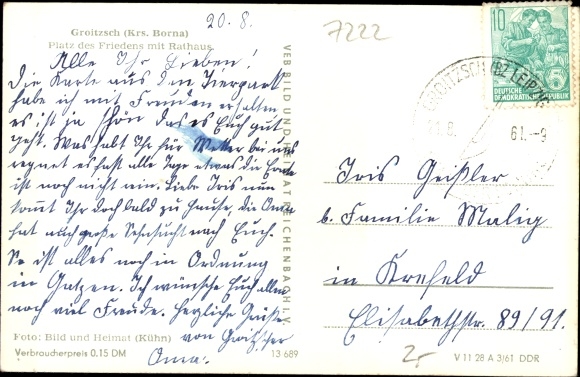 20. 8.
7222
Groitzsch (Krs. Borna)
Platz des Friedens mit Rathaus
Alle Ihr Lieben!
Die Karte aus dem Tierpark
habe ich mit Freuden erhalten
es ist ja schön das es Euch gut
geht. Was habt Ihr für Wetter bei uns
regnet es fast alle Tage etwas die Ernte
ist noch nicht ein. Liebe Iris nun
kommt Ihr doch bald zu Hause, die Oma
hat auch große Sehnsucht nach Euch.
So ist alles noch in Ordnung
in Gatzen. Ich wünsche Euch allen
noch viel Freude. Herzliche Grüße
von Groitzscher
Oma.
Foto: Bild und Heimat (Kühn)
Verbraucherpreis 0.15 DM
13 689
VEB BILD UND HEIMAT REICHENBACH I. V.
10
DEUTSCHE
DEMOKRATISCHE REPUBLIK
GROITZSCH (BZ LEIPZIG)
21.8. 61.-9
Iris Geißler
b. Familie Malig
in Krefeld
Elisabethstr. 89/91.
V 11 28 A 3/61 DDR